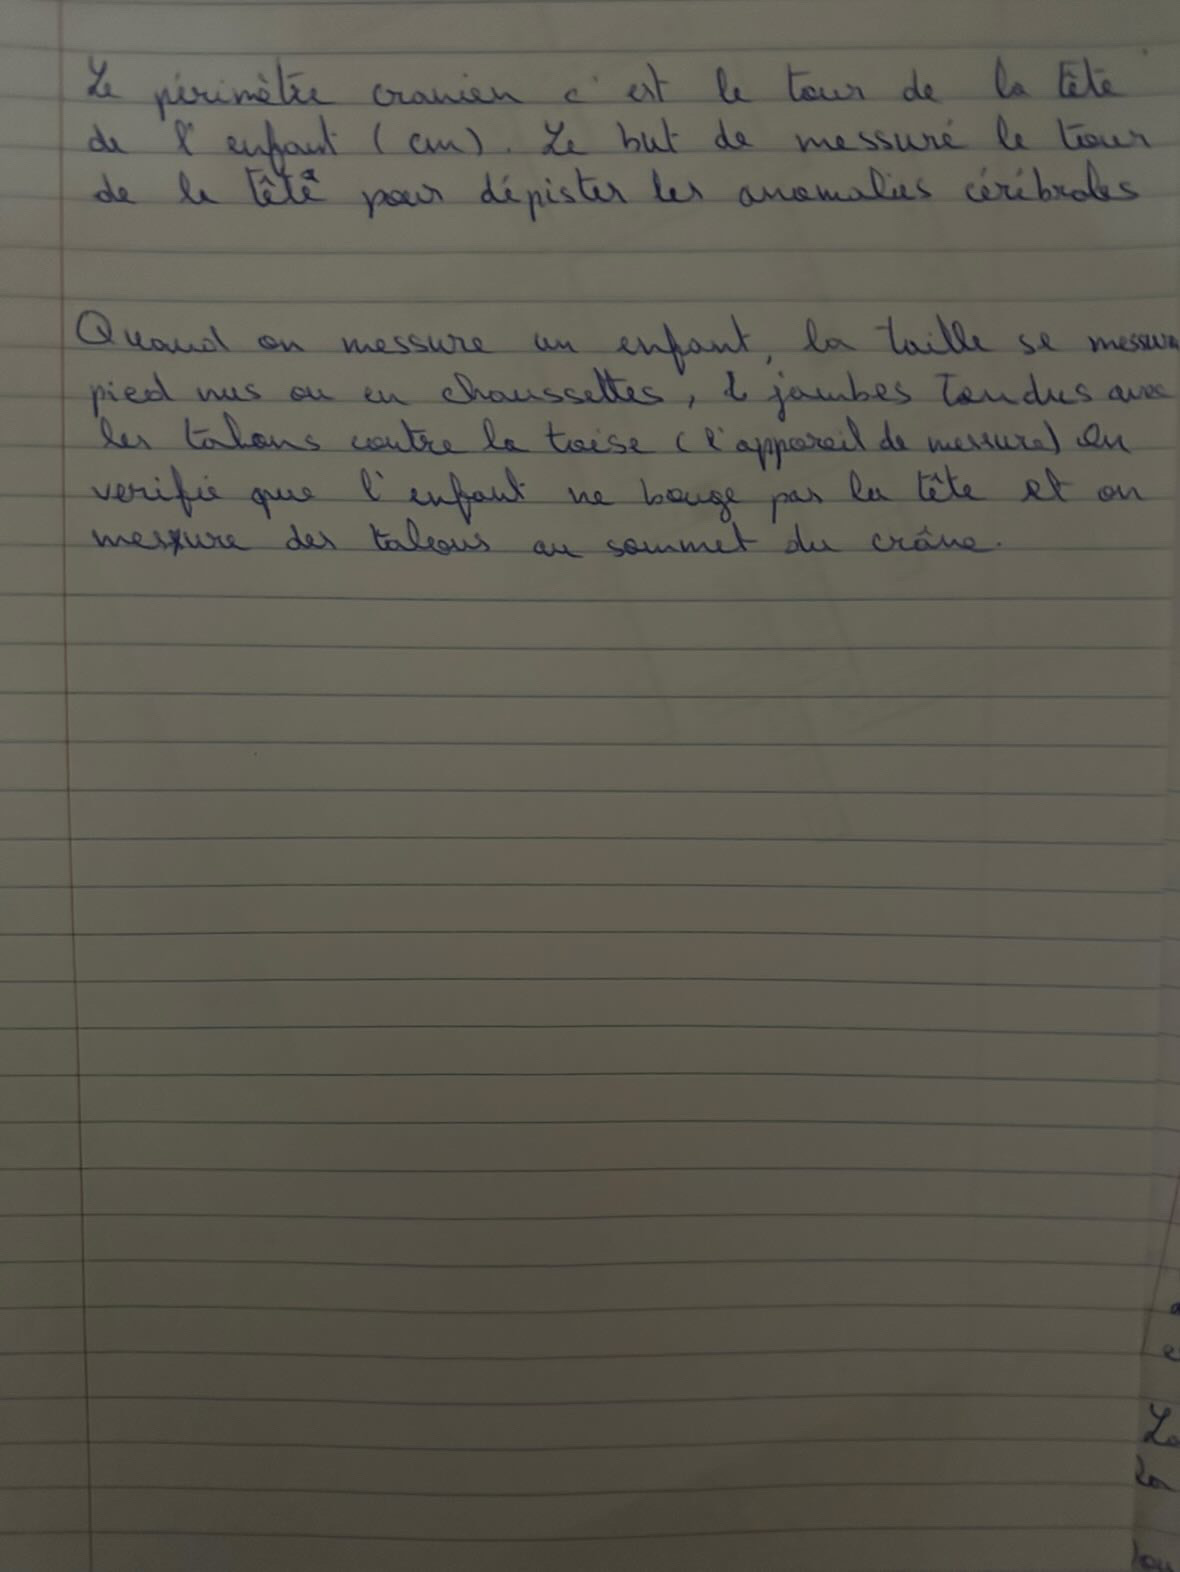 Le périmètre cranien c'est le tour de la tête
de l'enfant (cm). Le but de messuré le tour
de le tête pour dépister les anomalies cérébrales
Quand on messure un enfant, la taille se messure
pied nus ou en chaussettes, jambes tendus avec
les talons contre la toise (l'appareil de messure) On
verifie que l'enfant ne bouge pas la tête et on
messure des talons au sommet du crâne.